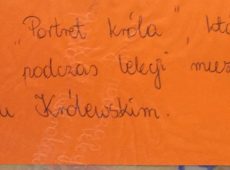 "Portret króla" kto
podczas lekcji muz
u Królewskim.